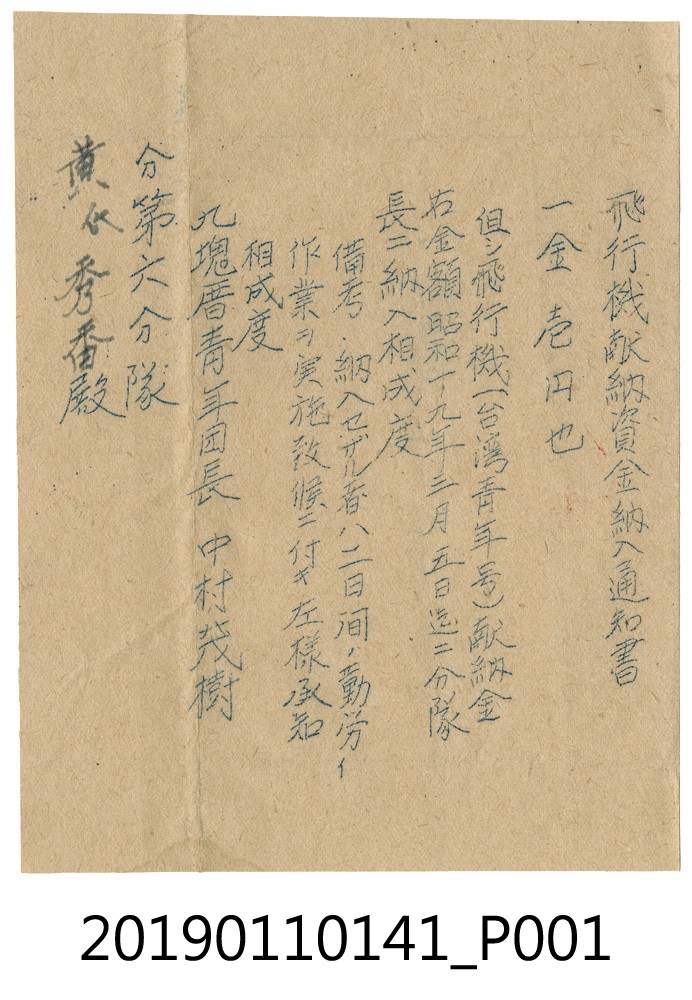 飛行機献納資金納入通知書
一金壱円也
但シ飛行機(台湾青年号)献納金
右金額昭和十九年三月五日迄ニ分隊
長ニ納入相成度
備考、納入セザル者ハ二日間ノ勤労
作業ヲ実施致候ニ付キ左様承知
相成度
九塊厝青年団長 中村茂樹
分第六分隊
黄氏秀番殿
20190110141_P001